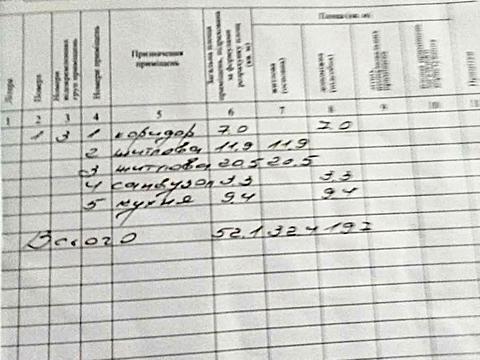 Площа (кв. м)
Літера
Поверх
Номери відокремлених груп приміщень
Номери приміщень
Призначення приміщень
Загальна площа приміщень, підрахована за формулами розрахунку площ (кв. м)
житлова (основна)
допоміжна (підсобна)
1 2 3 4 5 6 7 8 9 10 11
1 3 1 коридор 7.0 7.0
2 житлова 11,9 11,9
3 житлова 20,5 20,5
4 санвузол 3,3 3,3
5 кухня 9,4 9,4
Всього 52,1 32,4 19,7